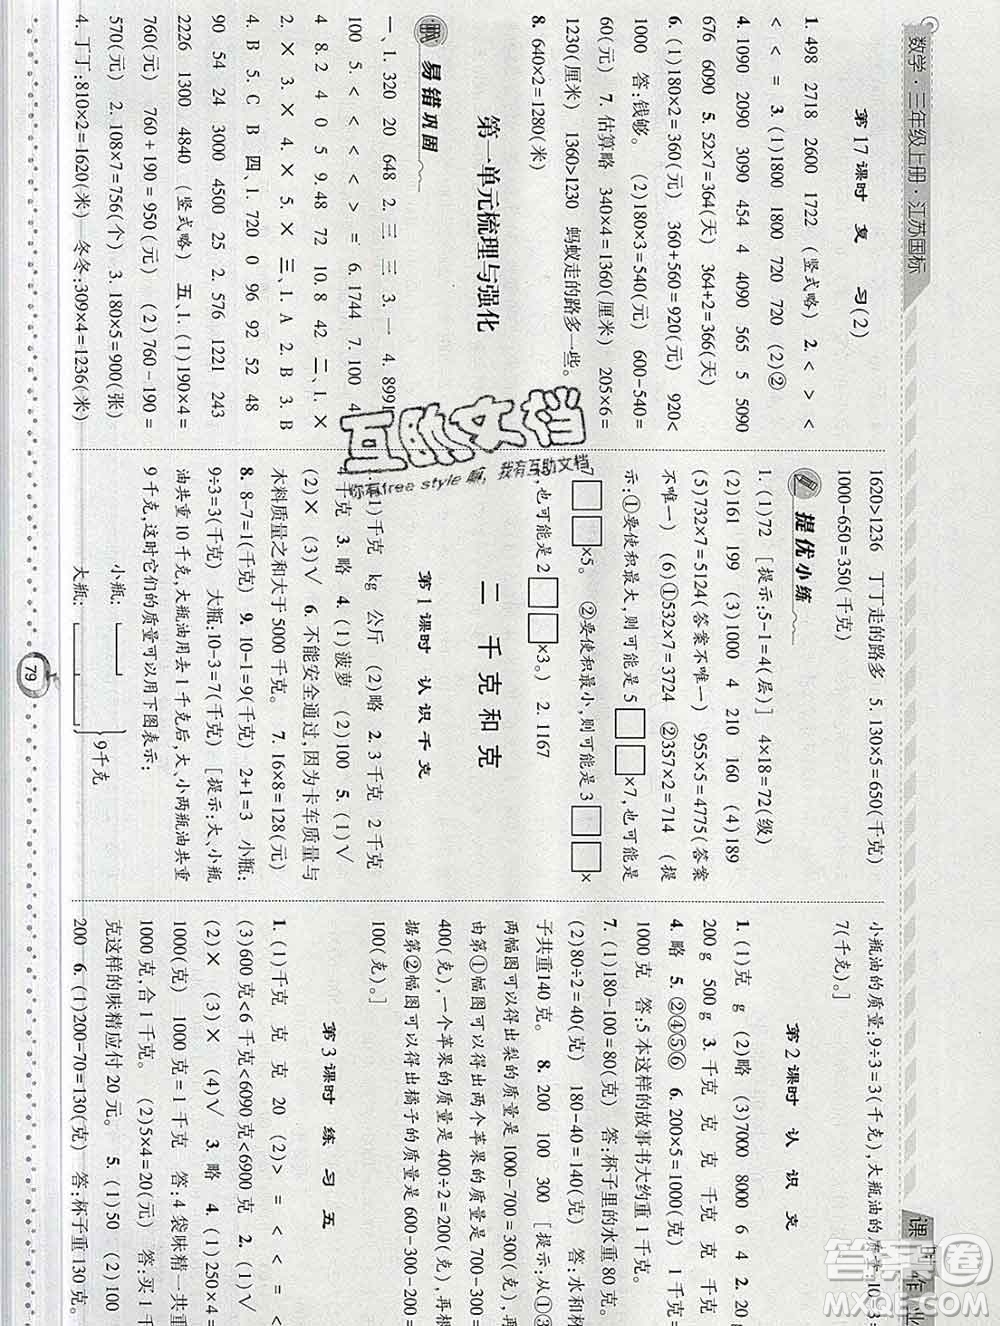 数学·三年级上册·江苏国标
第17课时 复 习(2)
1. 498 2718 2600 1722 (竖式略) 2. < > <
< < = 3. (1)1800 1800 720 720 (2)②
4. 1090 2090 3090 454 4 4090 565 5 5090
676 6090 5. 52×7=364(天) 364+2=366(天)
6. (1)180×2=360(元) 360+560=920(元) 920<
1000 答:钱够。 (2)180×3=540(元) 600-540=
60(元) 7. 估算略 340×4=1360(厘米) 205×6=
1230(厘米) 1360>1230 蚂蚁走的路多一些。
8. 640×2=1280(米)
第一单元梳理与强化
易错巩固
一、1. 320 20 648 2. 三 三 3. 一 4. 899
100 5. < < < < > = 6. 1744 7. 100 4
4 8. 2 4 0 5 9. 48 72 10. 8 42 二、1. ×
2. × 3. × 4. × 5. × 三、1. A 2. B 3. B
4. B 5. C B 四、1. 720 0 96 92 52 48
90 54 24 3000 4500 25 2. 576 1221 243
2226 1300 4840 (竖式略) 五、1. (1)190×4=
760(元) 760+190=950(元) (2)760-190=
570(元) 2. 108×7=756(个) 3. 180×5=900(张)
4. 丁丁:810×2=1620(米) 冬冬:309×4=1236(米)
1620>1236 丁丁走的路多 5. 130×5=650(千克)
1000-650=350(千克)
提优小练
1. (1)72 [提示:5-1=4(层)] 4×18=72(级)
(2)161 199 (3)1000 4 210 160 (4)189
(5)732×7=5124(答案不唯一) 955×5=4775(答案
不唯一) (6)①532×7=3724 ②357×2=714 (提
示:①要使积最大,则可能是5□□×7,也可能是
7□□×5。 ②要使积最小,则可能是3□□×
2,也可能是2□□×3。) 2. 1167
二 千克和克
第1课时 认识千克
1. (1)千克 kg 公斤 (2)略 2. 3千克 2千克
4千克 3. 略 4. (1)菠萝 (2)100 5. (1)√
(2)× (3)√ 6. 不能安全通过,因为卡车质量与
木料质量之和大于5000千克。 7. 16×8=128(元)
8. 8-7=1(千克) 9. 10-1=9(千克) 2+1=3 小瓶:
9÷3=3(千克) 大瓶:10-3=7(千克) [提示:大、小瓶
油共重10千克,大瓶油用去1千克后,大、小两瓶油共重
9千克,这时它们的质量可以用下图表示:
小瓶:
大瓶:
9千克
小瓶油的质量:9÷3=3(千克),大瓶油的质量:10-3=
7(千克)。]
第2课时 认识克
1. (1)克 g (2)略 (3)7000 8000 6 4 2. 20
200 g 500 g 3. 千克 克 克 千克 克 克
4. 略 5. ②④⑤⑥ 6. 200×5=1000(克) 1千克=
1000克 答:5本这样的故事书大约重1千克。
7. (1)180-100=80(克) 答:杯子里的水重80克。
(2)80÷2=40(克) 180-40=140(克) 答:水和杯
子共重140克。 8. 200 100 300 [提示:从①③
两幅图可以得出梨的质量是1000-700=300(克),再
由第①幅图可以得出两个苹果的质量是700-300=
400(克),一个苹果的质量是400÷2=200(克),再根
据第②幅图可以得出橘子的质量是600-300-200=
100(克)。]
第3课时 练 习 五
1. (1)千克 克 克 20 (2)> = < < = <
(3)600克<6千克<6090克<6900克 2. (1)√
(2)× (3)× (4)√ 3. 略 4. (1)250×4=
1000(克) 1000克=1千克 答:4袋味精一共重
1000克,合1千克。 (2)5×4=20(元) 答:买1千
克这样的味精应付20元。 5. (1)50 (2)100
200 6. (1)200-70=130(克) 答:杯子重130克。
课时作业
79
初女隔回
你有free style嘛,我有互助文档
答案圈
MXQE.COM